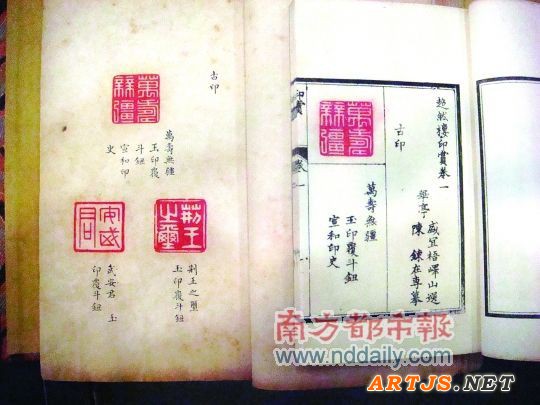 超然樓印賞卷一
華亭
盛宜梧嶧山選
陳鍊在專摹
古印
萬壽無疆
萬壽無疆
玉印覆斗鈕
宣和印史
印賞
卷一
古印
萬壽無疆
萬壽無疆
玉印覆
斗鈕
宣和印
史
荊王之璽
荊王之璽
玉印覆斗鈕
武安君 玉
印覆斗鈕
南方都市報
www.nddaily.com
ARTJS.NET